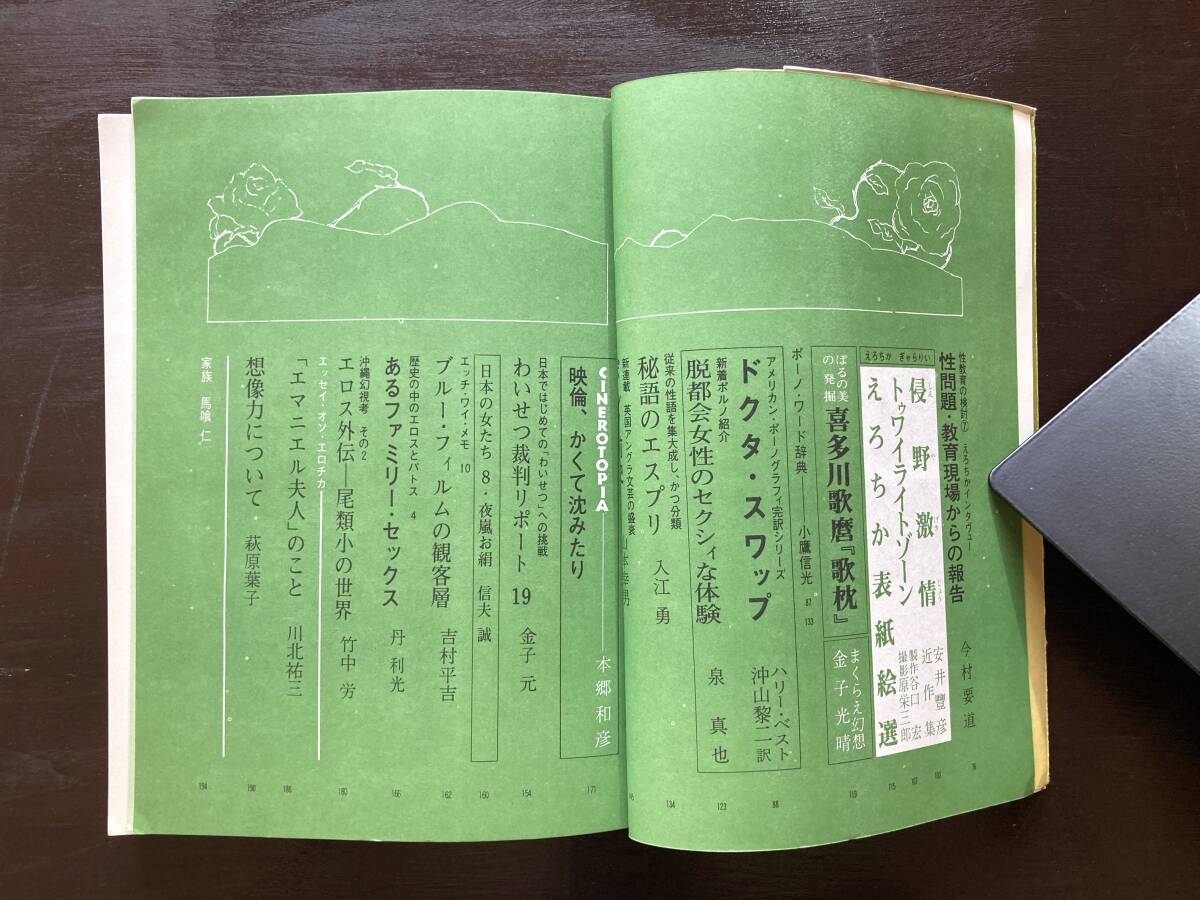 性教育の検討⑦ えろちかインタヴュー
性問題・教育現場からの報告 今村要道 76
えろちか ぎゃらりい
侵野激情 安井豊彦近作集 102
トゥワイライトゾーン 製作谷口宏 撮影原栄三郎 107
えろちか表紙絵選 115
ぽるの美の発掘
喜多川歌麿『歌枕』 まくらえ幻想 金子光晴 119
ポーノ・ワード辞典 小鷹信光 87 133
アメリカン・ポーノグラフィ完訳シリーズ
ドクタ・スワップ ハリー・ベスト 沖山黎二訳 88
新着ポルノ紹介
脱都会女性のセクシィな体験 泉真也 123
従来の性語を集大成し、かつ分類
秘語のエスプリ 入江勇 134
新連載 英国アングラ文芸の盛衰
山本幸男
CINEROTOPIA
映倫、かくて沈みたり 本郷和彦 171
日本ではじめての「わいせつ」への挑戦
わいせつ裁判リポート 19 金子元 154
日本の女たち 8・夜嵐お絹 信夫誠 160
エッチ・ワイ・メモ 10
ブルー・フィルムの観客層 吉村平吉 162
歴史の中のエロスとパトス 4
あるファミリー・セックス 丹利光 166
沖縄幻視考 その2
エロス外伝―尾類小の世界 竹中労 180
エッセイ・オン・エロチカ
「エマニエル夫人」のこと 川北祐三 186
想像力について 萩原葉子 190
家族 馬喰仁 194